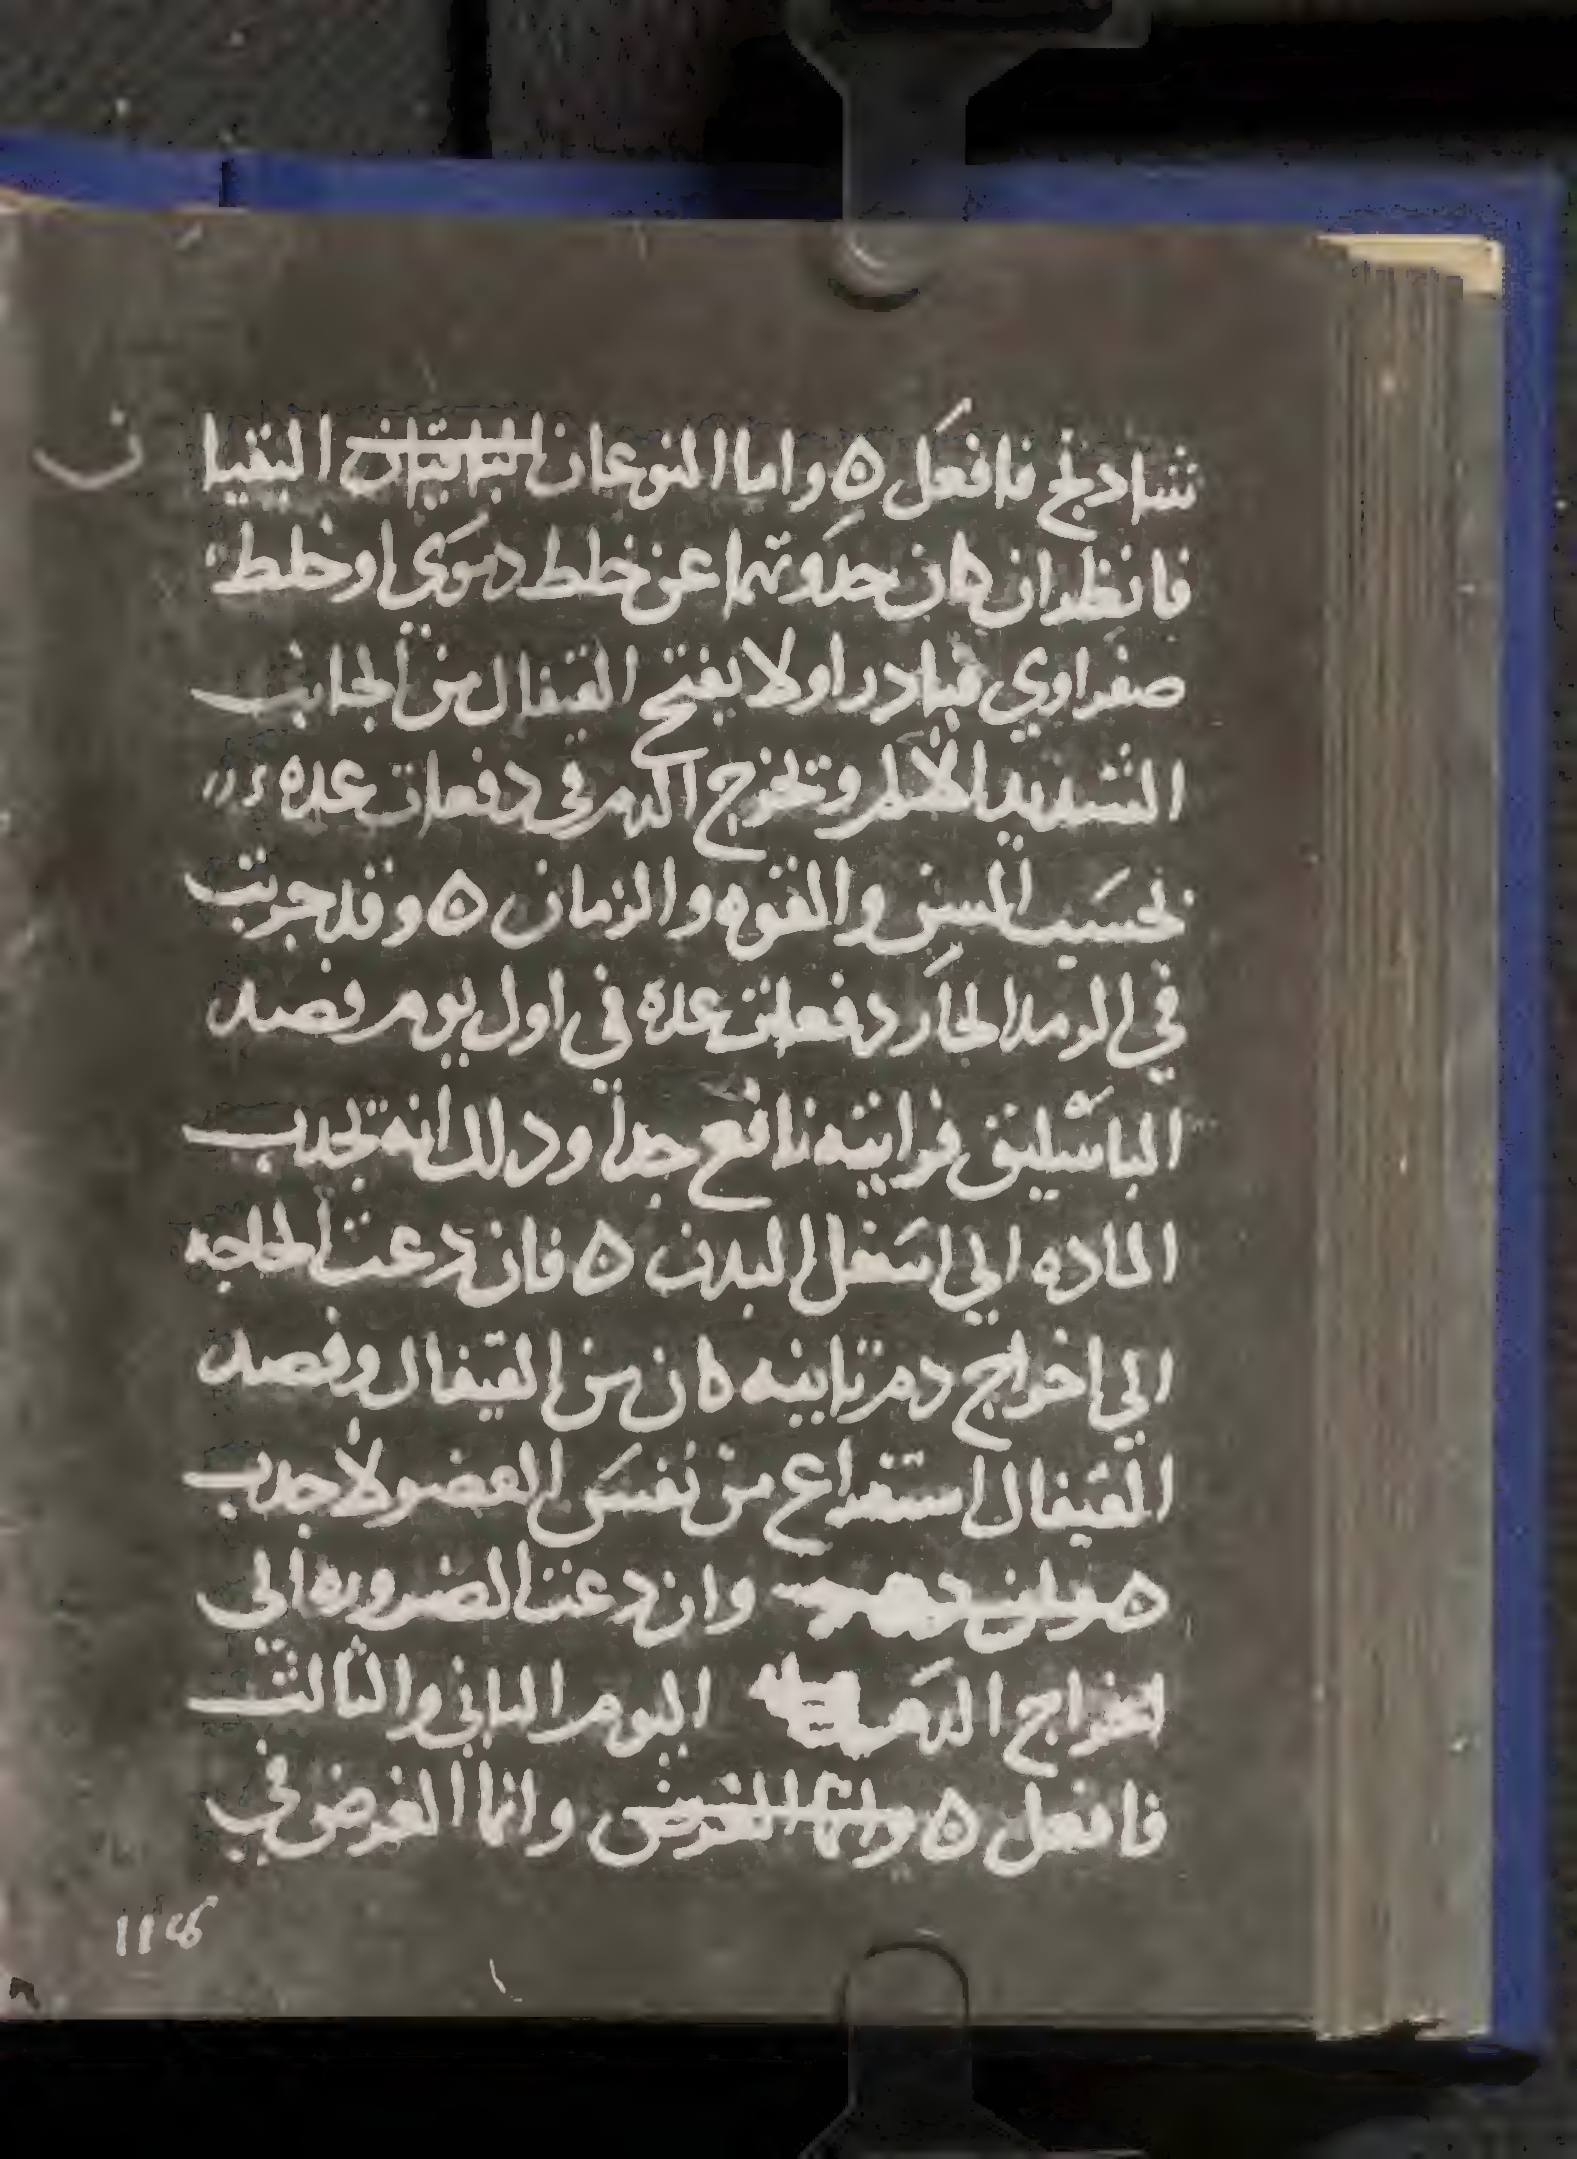 شادنج فافعل ه واما النوعان الباقيان البقيا ن
فانظر ان كان حدوثهما عن خلط دموي او خلط
صفراوي فبادر اولا بفتح القيفال من الجانب
الشديد الالم وتخرج الدم في دفعات عده
بحسب السن والقوه والزمان ه وقد جربت
في الرمد الحار دفعات عده في اول يوم فصد
الباسليق فرايته نافع جدا ودلك انه تجدب
الماده الي اسفل البدن ه فان دعت الحاجه
الي اخراج دم تانيه كان من القيفال وفصد
القيفال استفراغ من نفس العضو لا جدب
وان دعت الضروره الي
اخراج الدم اليوم الثاني والثالث
فافعل ه وانما الغرض وانما الغرض في